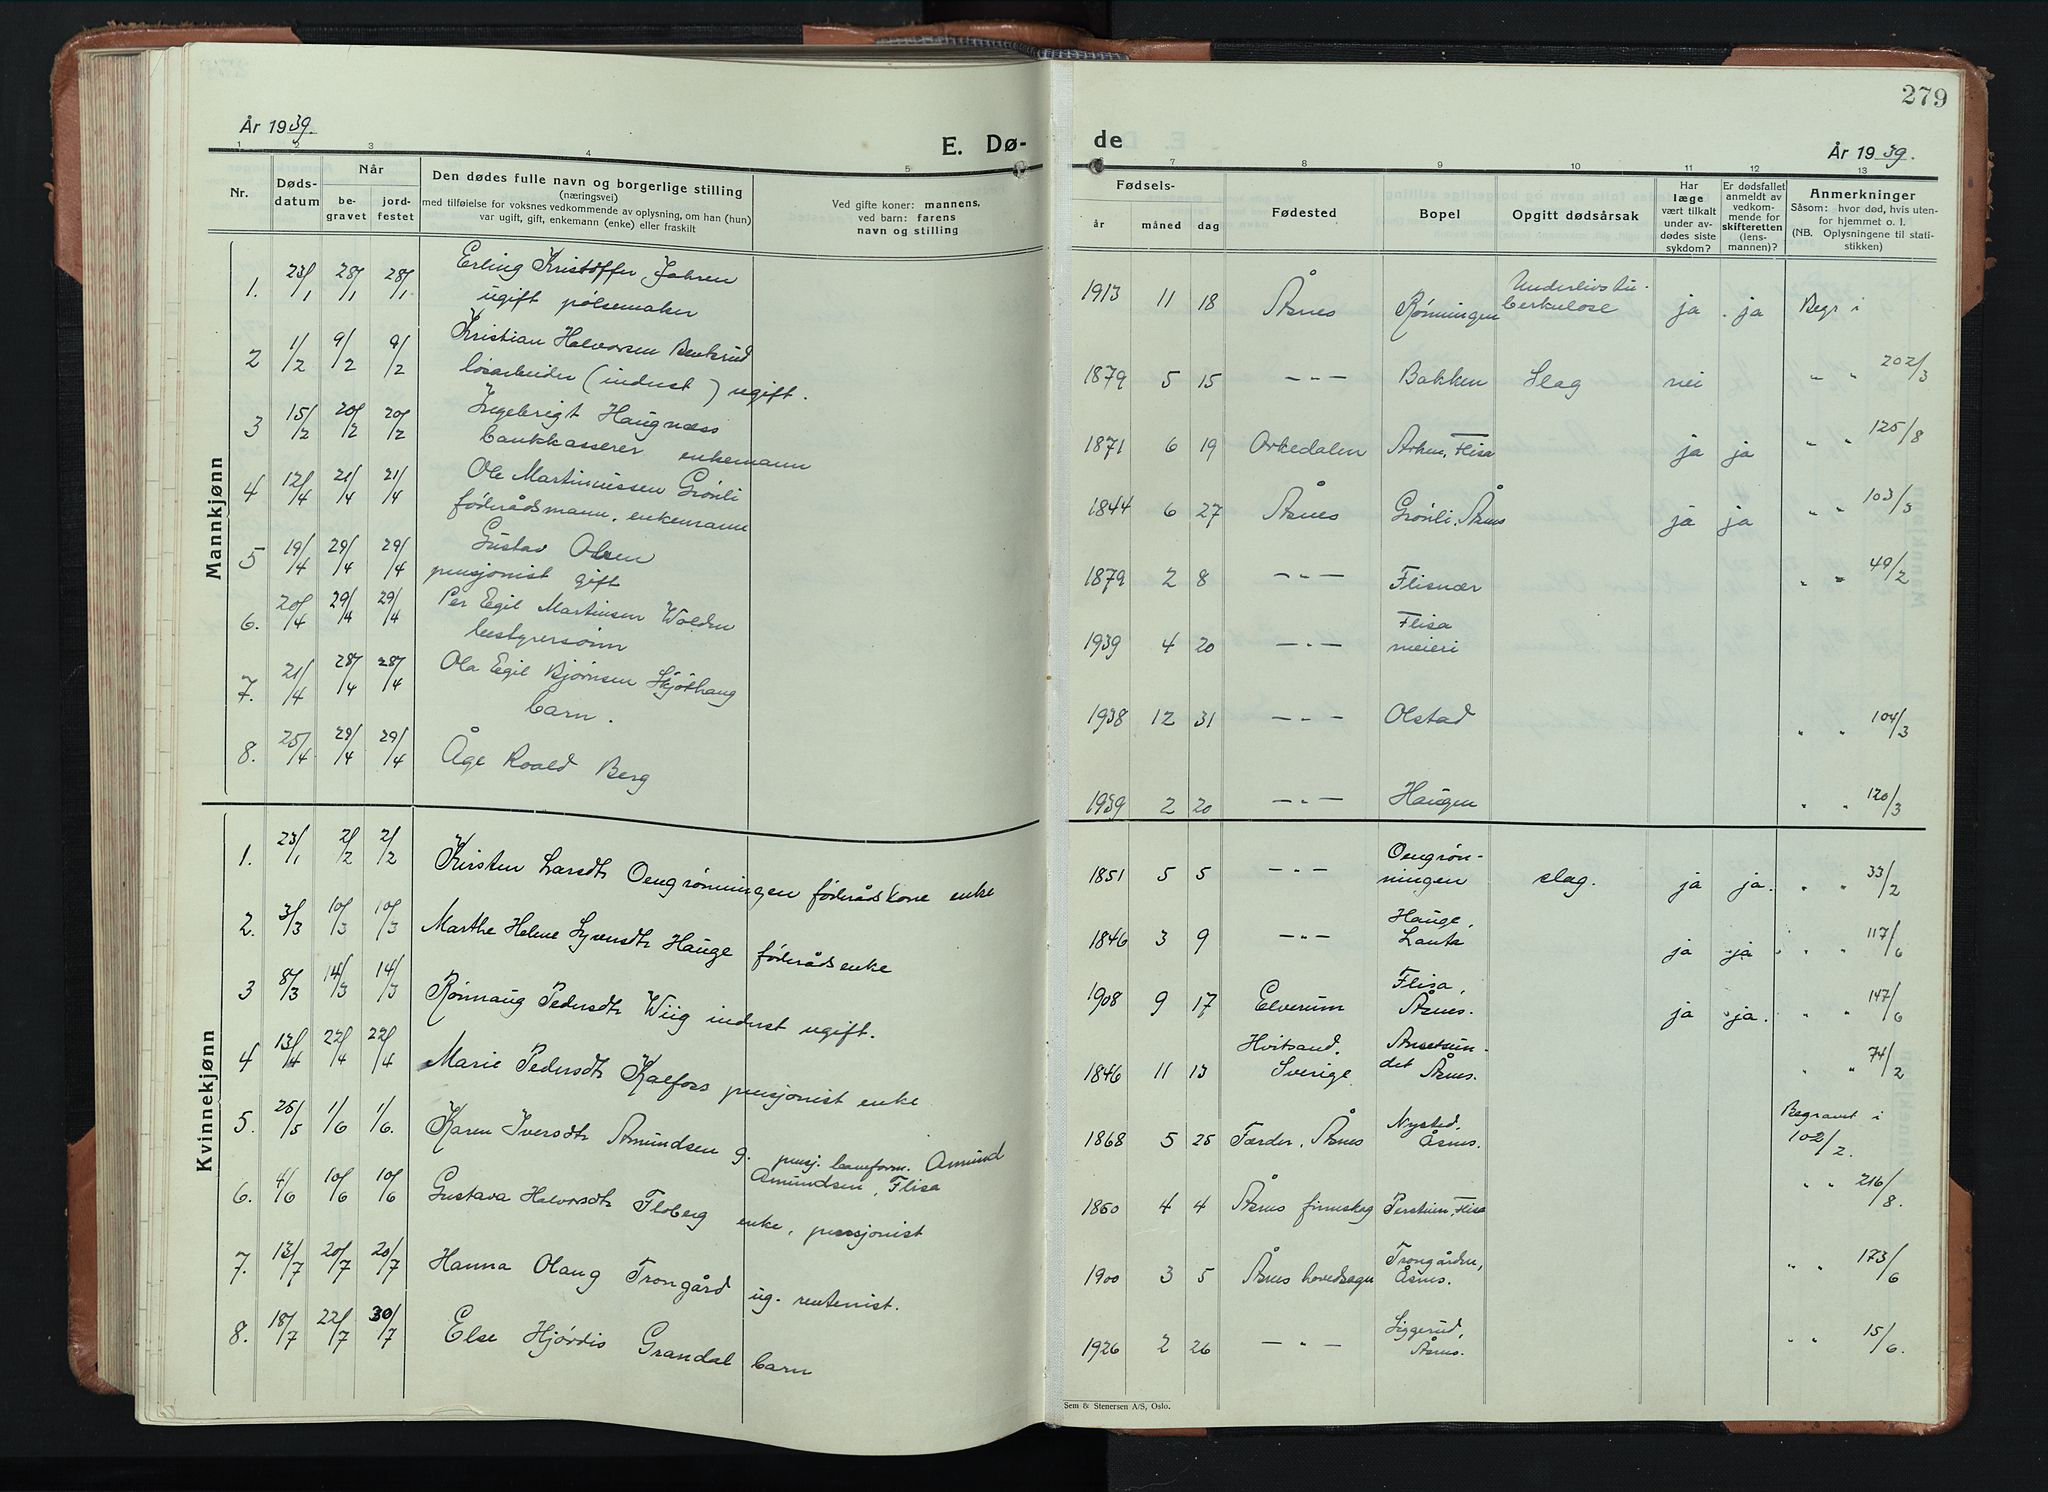 279
År 1939.
E. Dø-
de
År 1939.
1 2 3 4 5 7 8 9 10 11 12 13
Nr.
Døds-
datum
Når
be-
gravet
jord-
festet
Den dødes fulle navn og borgerlige stilling
(næringsvei)
med tilføielse for voksnes vedkommende av oplysning, om han (hun)
var ugift, gift, enkemann (enke) eller fraskilt
Ved gifte koner: mannens,
ved barn: farens
navn og stilling
Fødsels-
år måned dag
Fødested
Bopel
Opgitt dødsårsak
Har
læge
vært tilkalt
under av-
dødes siste
sykdom?
Er dødsfallet
anmeldt av
vedkom-
mende for
skifteretten
(lens-
mannen)?
Anmerkninger
Såsom: hvor død, hvis uten-
for hjemmet o. l.
(NB. Oplysningene til stati-
stikken)
Mannkjønn
1. 23/1 28/1 28/1 Erling Kristoffer Jahren
ugift pølsemaker
1913 11 18 Åsnes Rønningen Underlivstu-
berkulose ja ja Begr i
2 1/2 9/2 9/2 Kristian Halvorsen Benkrud
løsarbeider (indust) ugift.
1879 5 15 — " — Bakken Slag nei " " 202/3
3 15/2 20/2 20/2 Ingebrigt Haugnæss
bankkasserer enkemann
1871 6 19 Orkedalen Arken, Flisa ja ja " " 125/8
4 12/4 21/4 21/4 Ole Martinussen Grønli
føderådsmann, enkemann
1844 6 27 Åsnes Grønli, Åsnes ja ja " " 103/3
5 19/4 29/4 29/4 Gustav Olsen
pensjonist gift
1879 2 8 — " — Flisnær " " 49/2
6. 20/4 29/4 29/4 Per Egil Martinsen Wolden
bestyrersønn
1939 4 20 — " — Flisa
meieri
7. 21/4 28/4 28/4 Ola Egil Bjørnsen Skjøthaug
barn.
1938 12 31 — " — Olstad " " 104/3
8. 25/4 29/4 29/4 Åge Roald Berg
1939 2 20 — " — Haugen " " 120/3
Kvinnekjønn
1. 23/1 2/2 2/2 Kirsten Larsdtr Oengrønningen føderådskone enke
1851 5 5 — " — Oengrøn-
ningen slag. ja ja. " " 33/2
2. 3/3 10/3 10/3 Marthe Helene Syversdtr Hauge føderådsenke
1846 3 9 — " — Hauge,
ja ja " " 117/6
3 8/3 14/3 14/3 Rønnaug Pedersdtr Wiig indust ugift.
1908 9 17 Elverum Flisa,
Åsnes. ja ja. " " 147/6
4 13/4 22/4 22/4 Marie Pedersdtr Kalfoss pensjonist enke
1846 11 13 Hvitsand,
Sverige Arnetsun-
det Åsnes. " " 74/2
5. 26/5 1/6 1/6. Karen Iversdtr Amundsen g. pensj. baneform. Amund
Amundsen, Flisa
1868 5 25 Færder, Åsnes Nysted,
Åsnes. Begravet i
102/2.
6. 4/6 10/6 10/6 Gustava Halvorsdtr Floberg enke, pensjonist
1860 4 4 Åsnes finnskog Perstun, Flisa " " 216/8.
7. 13/7 20/7 20/7 Hanna Olaug Trongård ug. rentenist.
1900 3 5 Åsnes hovedsogn Trongården,
Åsnes. " " 173/6
8. 18/7 22/7 30/7 Else Hjørdis Grandal barn
1926 2 26 — " — Liggerud,
Åsnes. " " 15/6.
Sem & Stenersen A/S, Oslo.